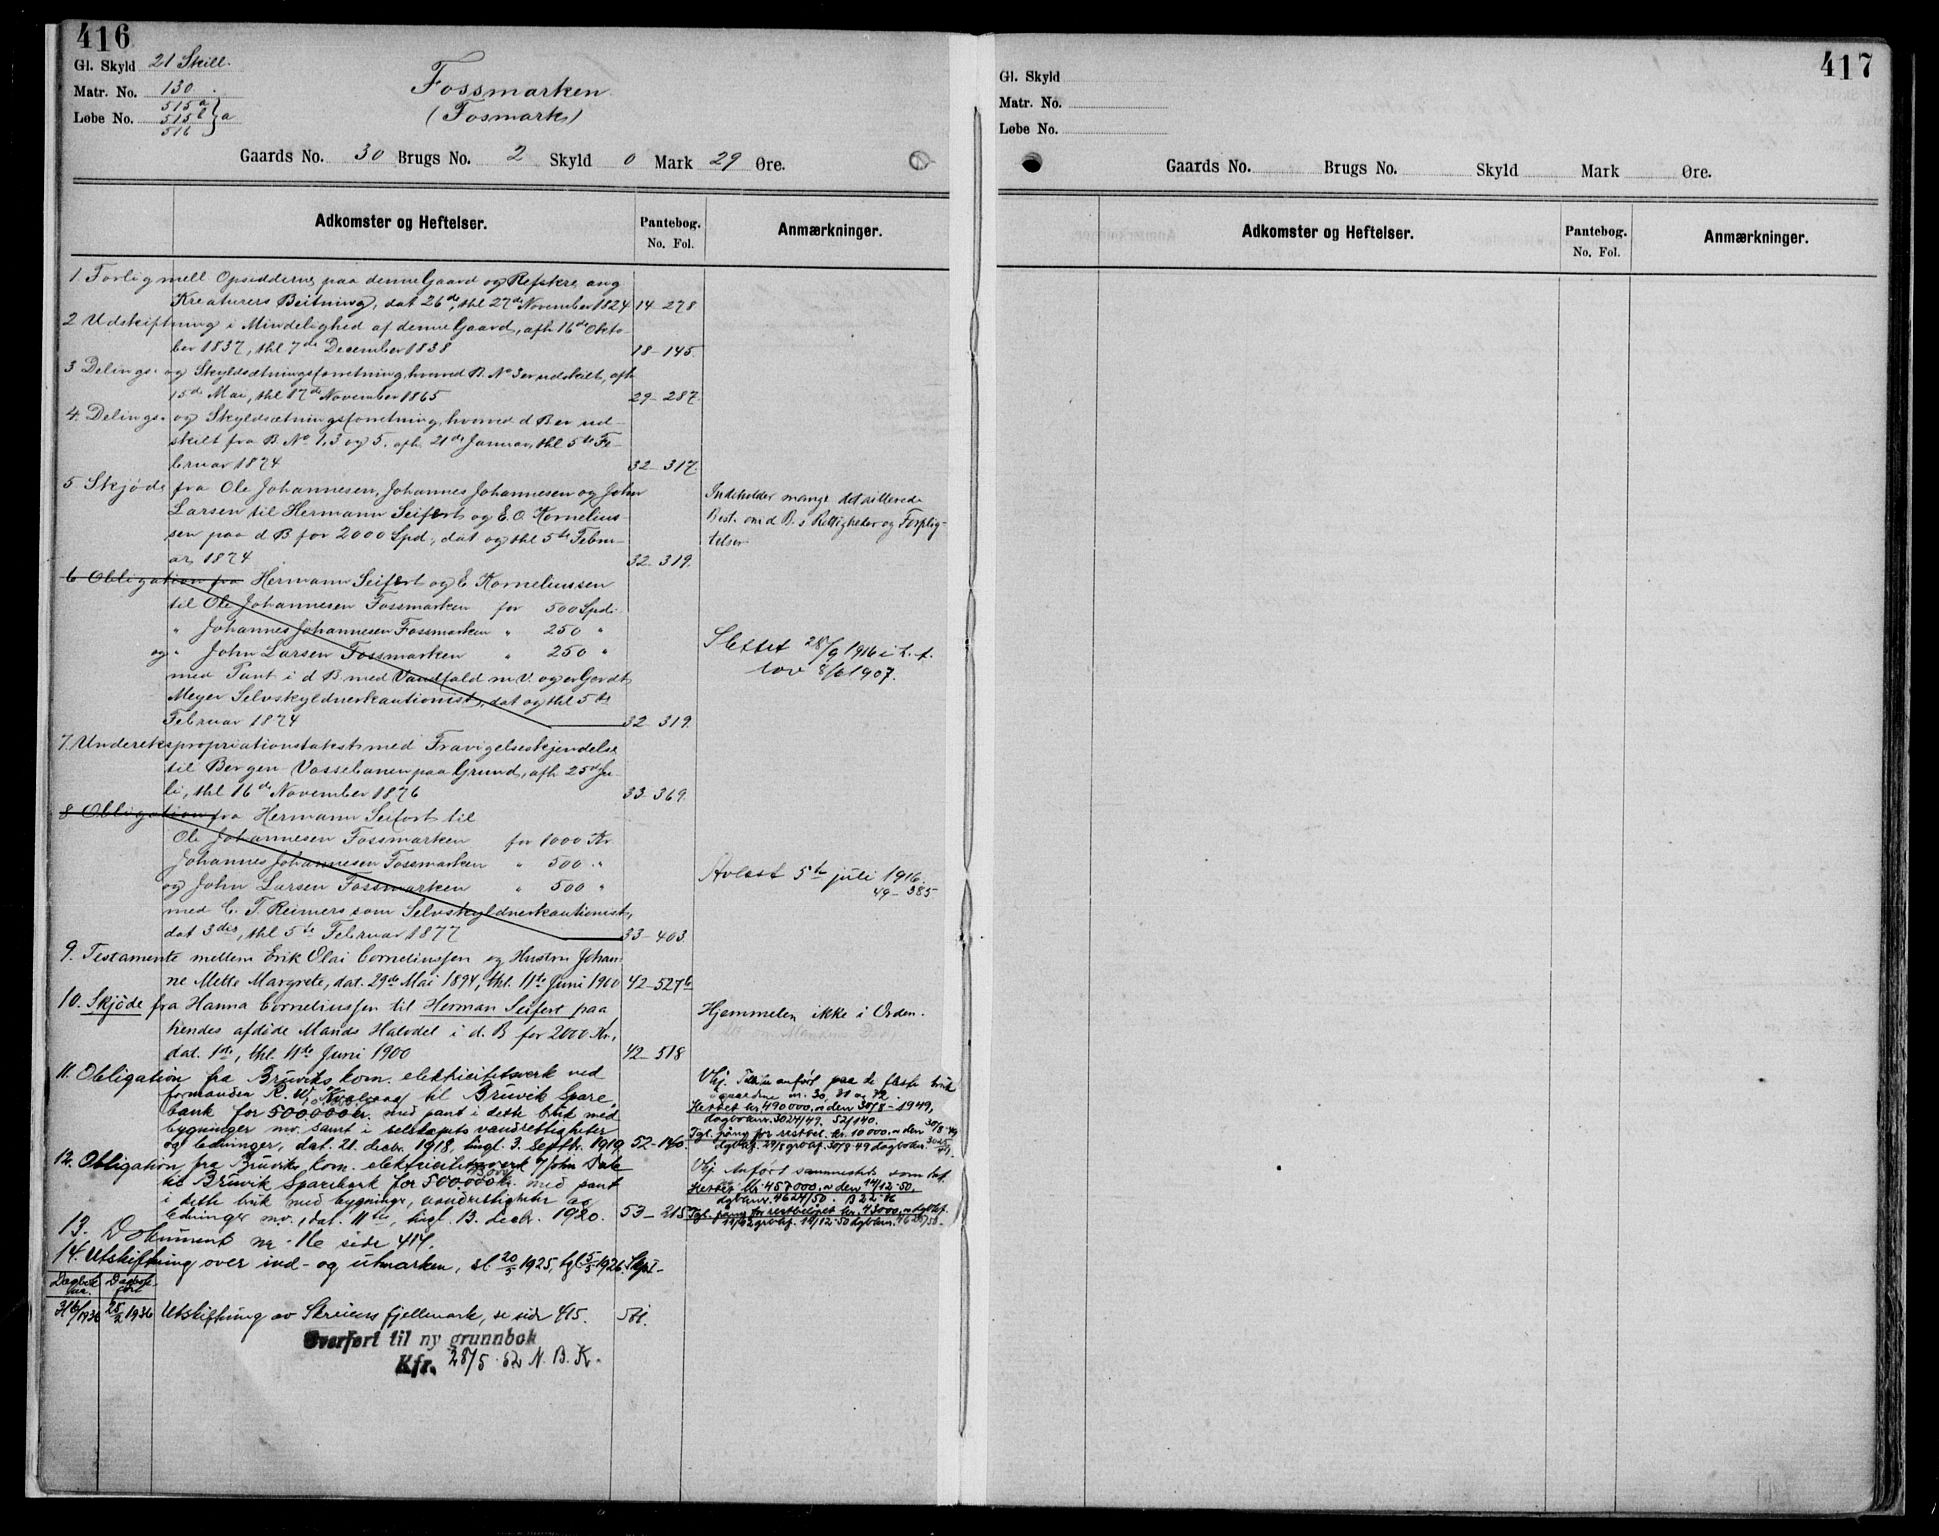 416
Gl. Skyld 21 Skill.
Matr. No. 130.
Løbe No. 515a 515b 516 } a
Fossmarken
(Fosmark)
Gaards No. 30 Brugs No. 2 Skyld 0 Mark 29 Øre.
Adkomster og Heftelser.
Pantebog.
No. Fol.
Anmærkninger.
1 Forlig mell Opsidderne paa denne Gaard og Refskre ang
Kreaturers Beitning, dat 26de, thl 27de November 1824 14-278
2 Udskiftning i Mindelighed af denne Gaard, afh 16de Okto-
ber 1837, thl 7de December 1838 18-145
3 Delings- og Skyldsætningsforretning, hvorved B. No 3 er udskilt, afh
15de Mai, thl 17de November 1865 29-287.
4. Delings- og Skyldsætningsforretning, hvorved d B er ud-
skilt fra B No 1, 3 og 5. afh 21de Januar, thl 5te Fe-
bruar 1874 32-317.
5 Skjøde fra Ole Johannesen, Johannes Johannesen og John
Larsen til Hermann Seifert og E. O. Kornelius-
sen paa d B for 2000 Spd, dat og thl 5te Febru-
ar 1874 32-319.
Indeholder mange detaillerede
Best. om d. B.s Rettigheder og Forplig-
telser
6 Obligation fra Hermann Seifert og E Korneliussen
til Ole Johannesen Fossmarken for 500 Spd.
" Johannes Johannesen Fossmarken " 250 "
og " John Larsen Fossmarken " 250 "
med Pant i d B med Vandfald m V. og er Gerdt
Meyer Selvskyldnerkautionist, dat og thl 5te
Februar 1874 32-319.
Slettet 28/9 1916 i h. t.
lov 8/6 1907.
7. Underekspropriationstakst med Fravigelseskjendelse
til Bergen-Vossebanen paa Grund, afh 25de Ju-
li, thl 16de November 1876 33-369.
8 Obligation fra Hermann Seifert til
Ole Johannesen Fossmarken for 1000 Kr
Johannes Johannesen Fossmarken " 500 "
og John Larsen Fossmarken " 500 "
med C. T. Reimers som Selvskyldnerkautionist,
dat 3die, thl 5te Februar 1877 33-403.
Avlæst 5te juli 1916.
49-385
9. Testamente mellem Erik Olai Corneliussen og Hustru Johan-
ne Mette Margrete, dat. 29de Mai 1894, thl. 11te Juni 1900 42-527b
10. Skjøde fra Hanna Corneliussen til Herman Seifert paa
hendes afdøde Mands Halvdel i d. B for 2000 Kr,
dat. 1ste, thl. 11te Juni 1900 42-518
Hjemmelen ikke i Orden.
11. Obligation fra Bruviks kom. elektricitetsverk ved
formanden R. W. til Bruvik Spare-
bank for 500000 kr. med pant i dette bruk med
bygninger mv. samt i selskapets vandrettigheter
og ledninger, dat. 21. decbr. 1918, tingl. 3. septbr. 1919 52-140
Vhj. anført paa de fleste bruk
i gaardene nr. 30, 31 og 32.
Slettet kr. 490 000,- den 30/8-1949,
dagboknr. 3024/49. 52/140.
Tgl. påny for restbel. kr. 10 000.- den 30/8-49
12. Obligation fra Bruviks kom. elektricitetsverk v/ John Dale
til Bruvik Sparebank for 500.000 kr. med pant
i dette bruk med bygninger, vandrettigheter og
ledninger mv., dat. 11te, tingl. 13. decbr. 1920. 53-215
Vhj. Anført sammesteds som 1at.
Slettet kr. 457 000.- den 14/12-50,
dgboknr. 4624/50.
Tgl. påny for restbeløpet kr. 43000,-
13. Dokument nr. 11c side 414.
14. Utskiftning over ind- og utmarken, sl 20/5 1925, tgl 5/5 1926.
Dagbok nr. Dagbok ført
316/1936 25/2 1936 Utskiftning av Skreiens fjellmark, se side 415.
Overført til ny grunnbok
Kfr. 28/5-52 N. B. K.
417
Gl. Skyld
Matr. No.
Løbe No.
Gaards No. Brugs No. Skyld Mark Øre.
Adkomster og Heftelser.
Pantebog.
No. Fol.
Anmærkninger.